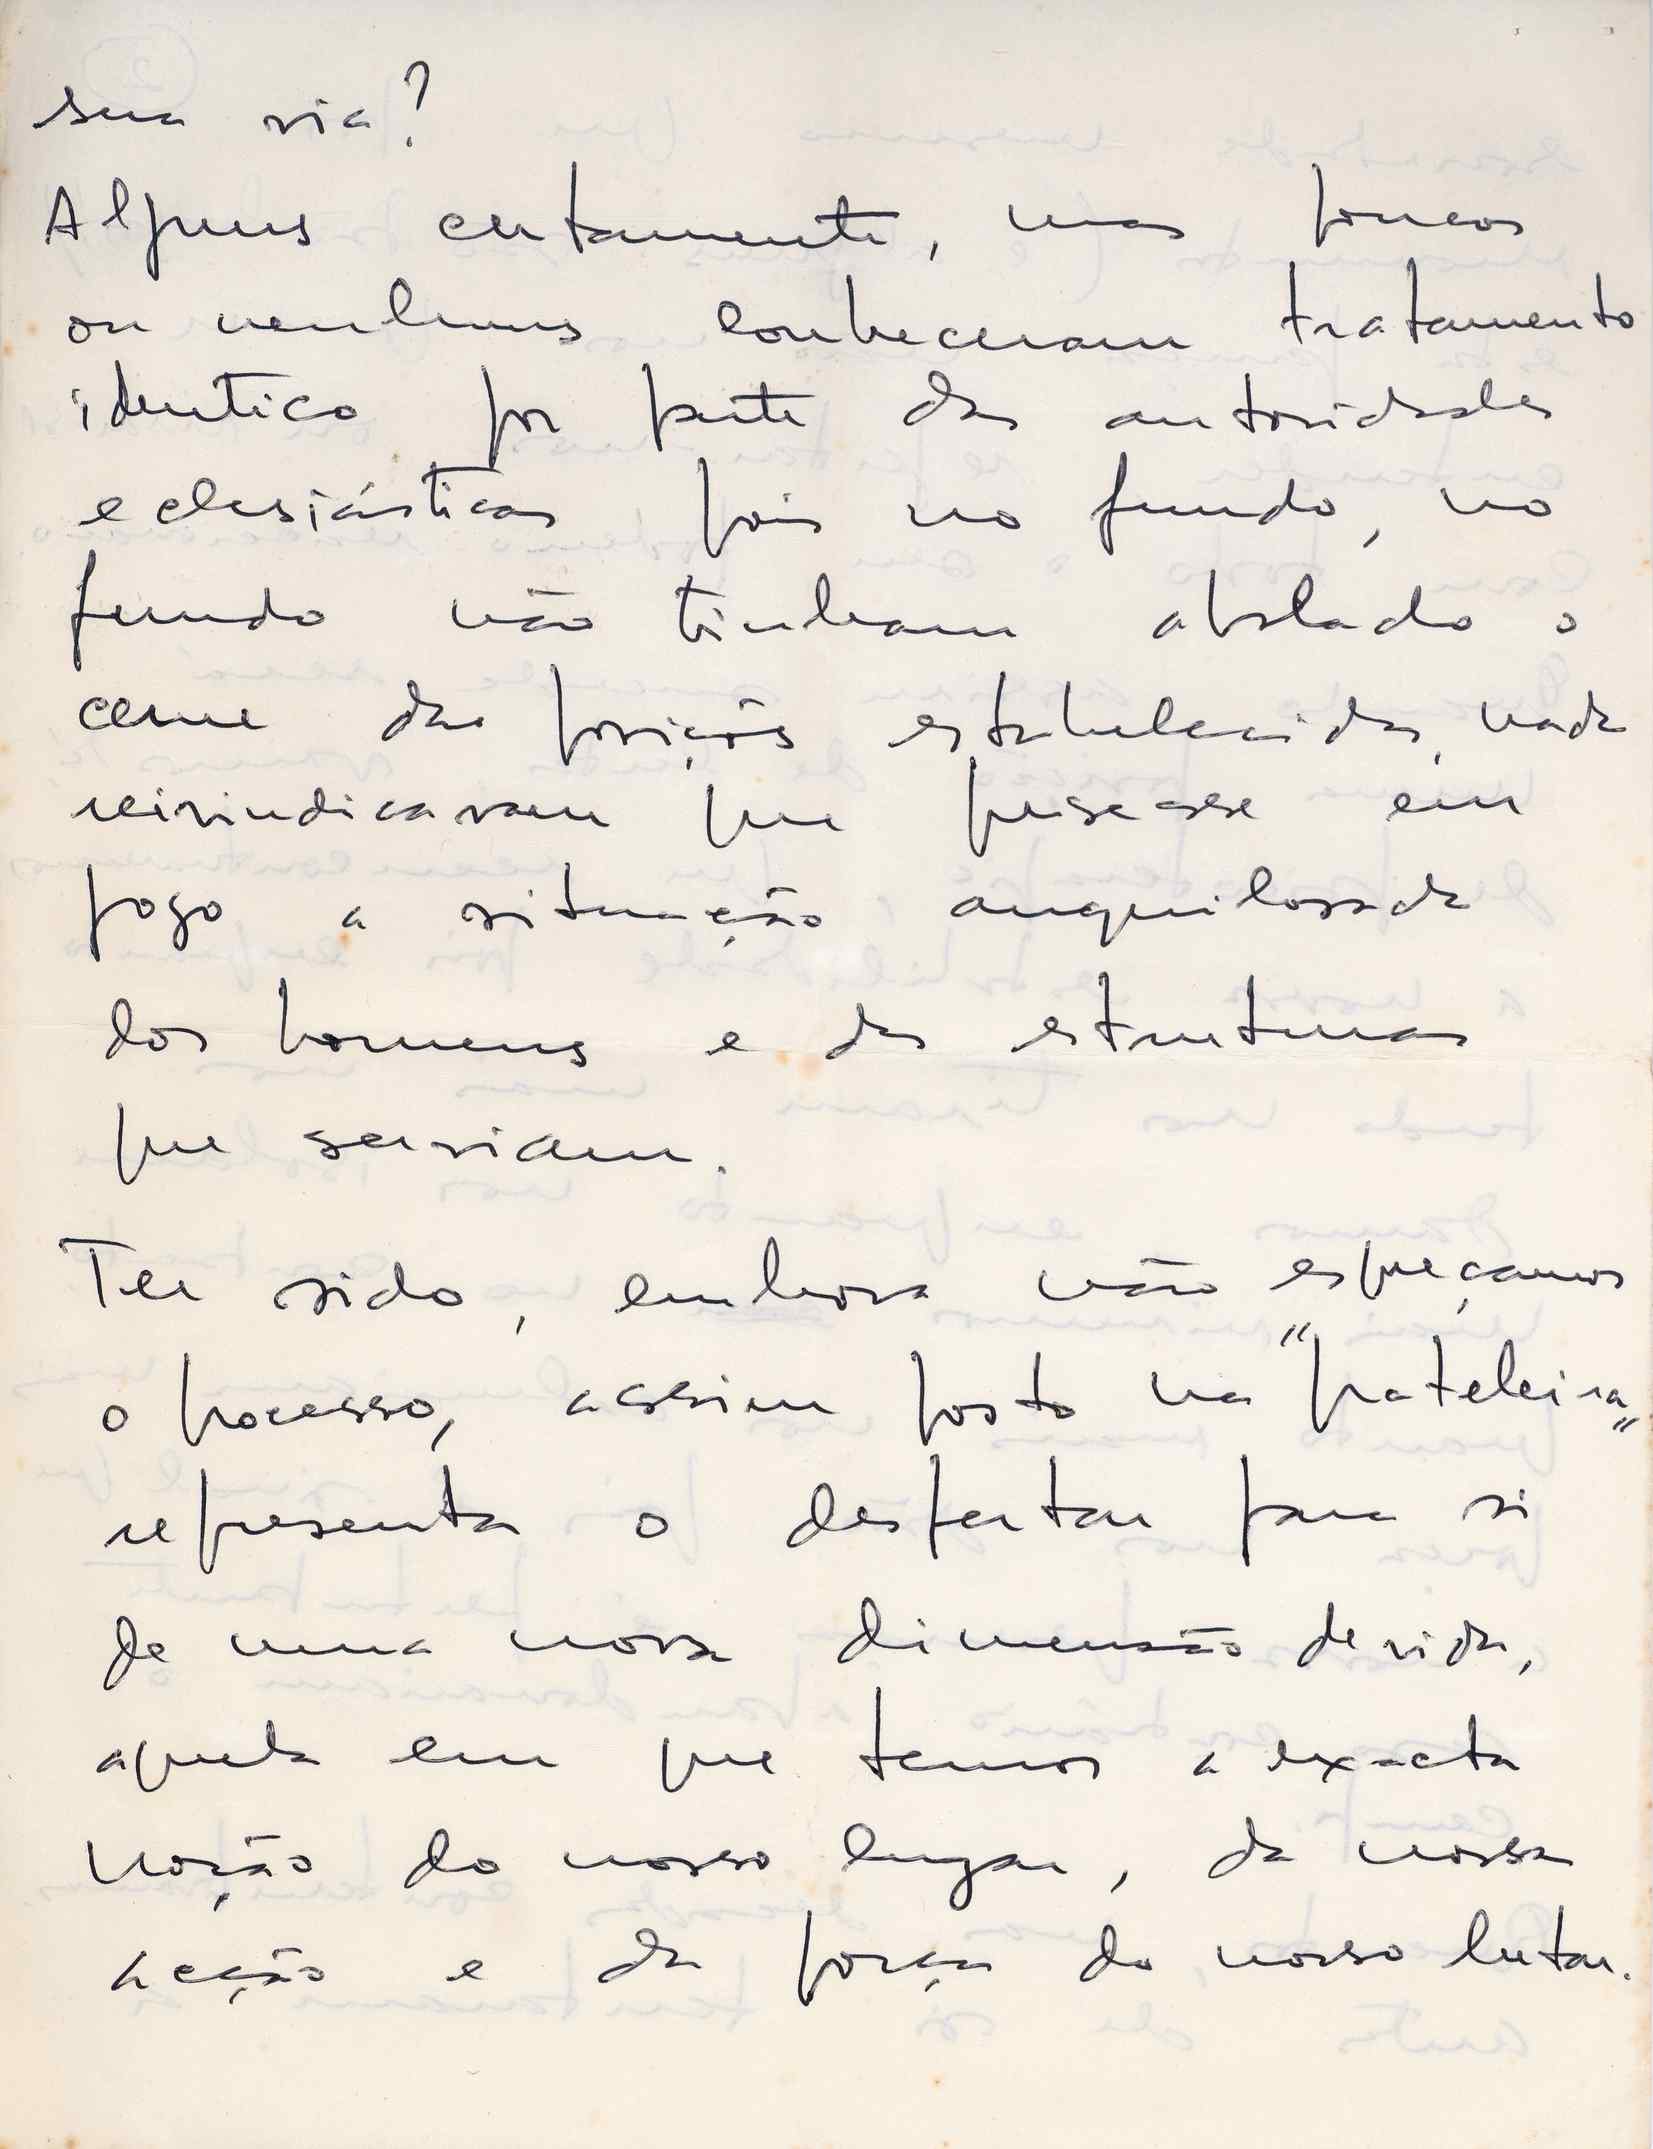 sua via?
Alguns certamente, mas poucos
ou nenhuns conheceram tratamento
identico por parte das autoridades
eclesiásticas pois no fundo, no
fundo não tinham abalado o
cerne das posições estabelecidas, nada
reivindicavam que pusesse em
jogo a situação anquilosada
dos homens e das estruturas
que serviam.
Ter sido, embora não esqueçamos
o processo, assim posto na "prateleira"
representa o despertar para si
de uma nova dimensão de vida,
aquela em que temos a exacta
noção do nosso lugar, da nossa
acção e da força do nosso lutar.